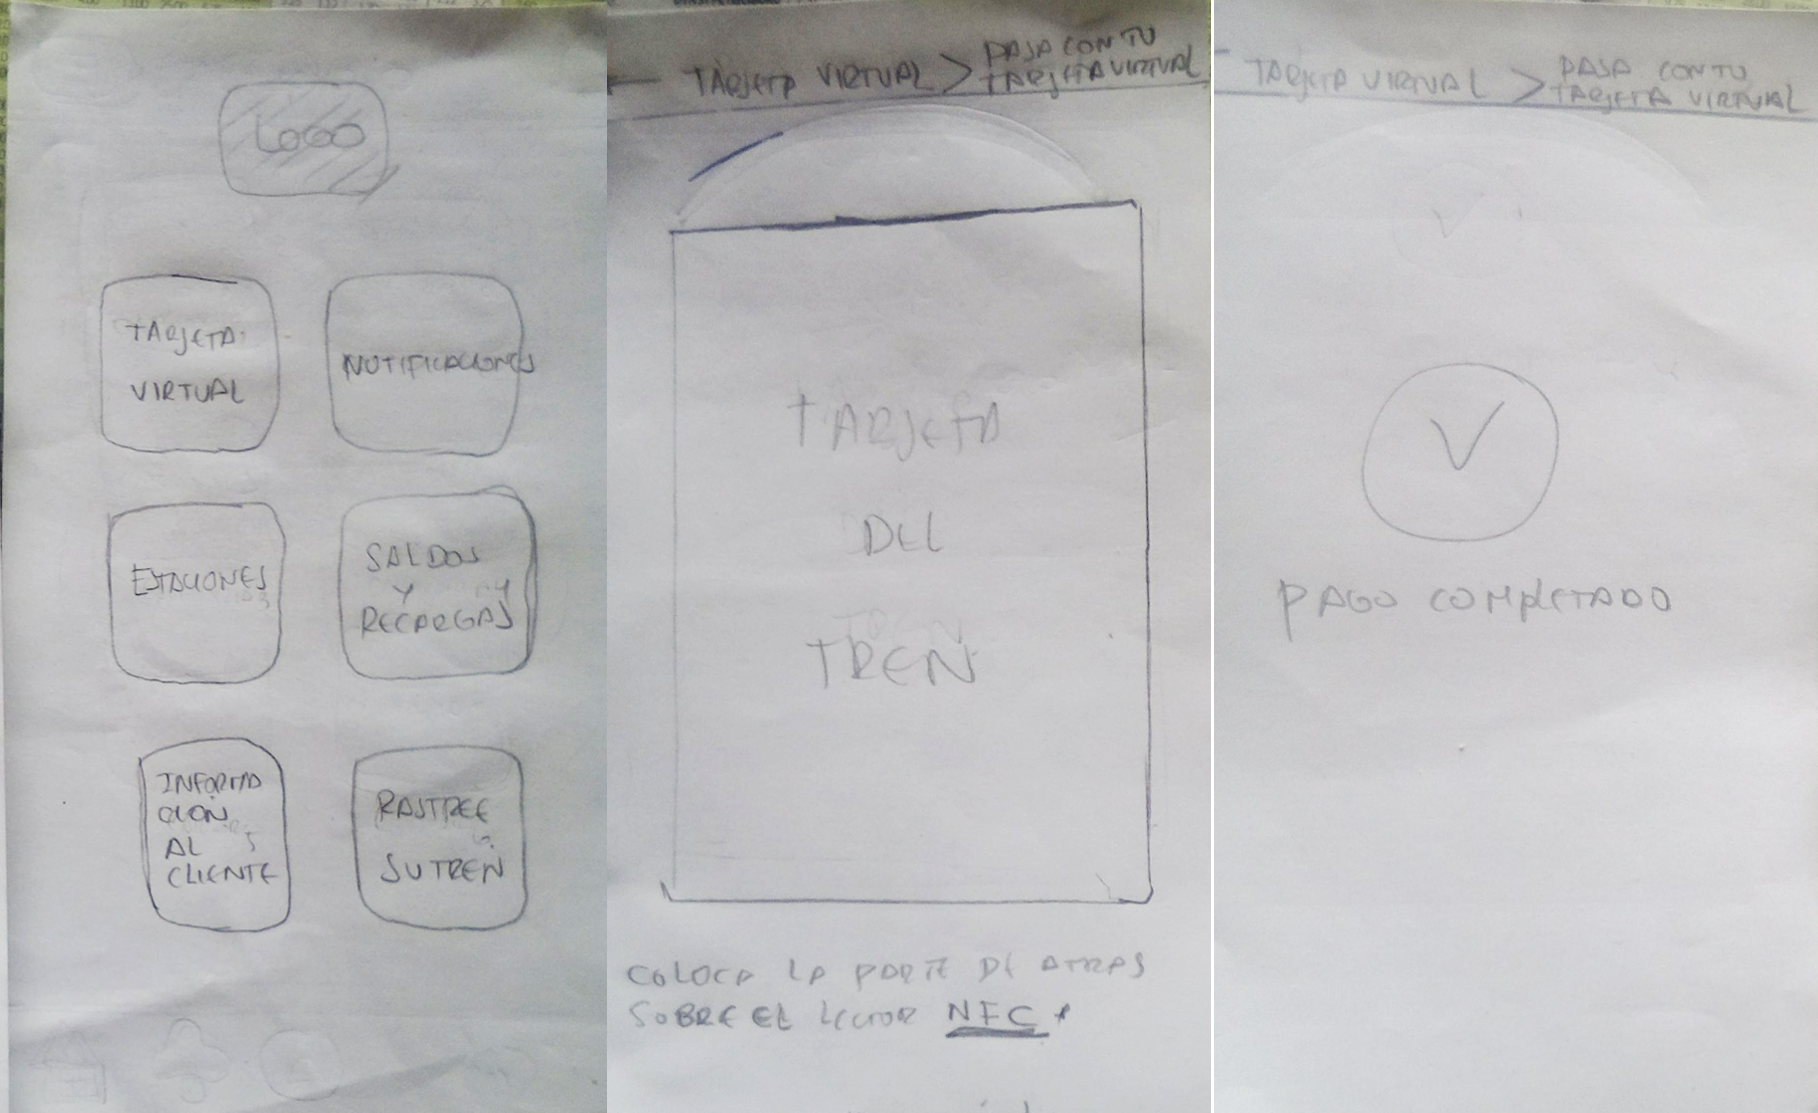 LOGO
TARJETA
VIRTUAL
NOTIFICACIONES
ESTACIONES
SALDOS
Y
RECARGAS
INFORMA
CION
AL
CLIENTE
RASTREE
SU TREN
← TARJETA VIRTUAL > PASA CON TU
TARJETA VIRTUAL
TARJETA
DEL
TREN
COLOCA LA PARTE DE ATRAS
SOBRE EL LECTOR NFC
TARJETA VIRTUAL > PASA CON TU
TARJETA VIRTUAL
PAGO COMPLETADO